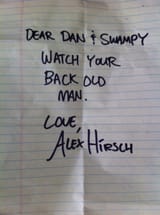 DEAR DAN & SWAMPY
WATCH YOUR
BACK OLD
MAN.
LOVE,
ALEX HIRSCH